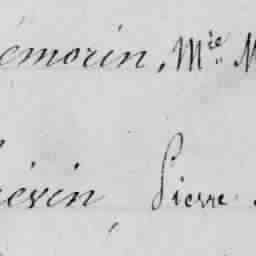 émorin, Mie M
évin, Pierre